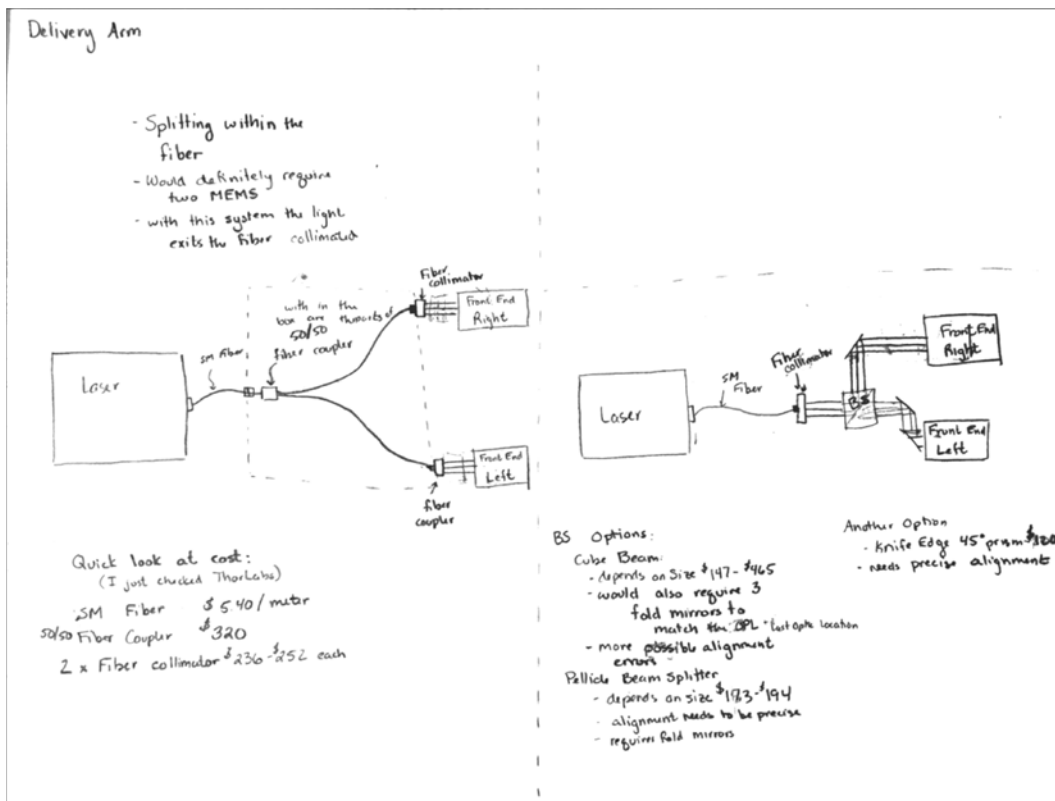 Delivery Arm
- Splitting within the
fiber
- Would definitely require
two MEMS
- with this system the light
exits the fiber collimated
Fiber
collimator
with in the
box are
50/50
fiber coupler
SM Fiber
Laser
Front End
Right
Front End
Left
fiber
coupler
Quick look at cost:
(I just checked ThorLabs)
SM Fiber $5.40/meter
50/50 Fiber Coupler $320
2 x Fiber collimator $236-$252 each
Laser
SM
Fiber
Fiber
collimator
BS
Front End
Right
Front End
Left
BS Options:
Cube Beam:
- depends on Size $147-$465
- would also require 3
fold mirrors to
match the OPL + last optic location
- more possible alignment
errors
Pellicle Beam Splitter
- depends on size -$194
- alignment needs to be precise
- requires fold mirrors
Another Option
- Knife Edge 45° prism
- needs precise alignment